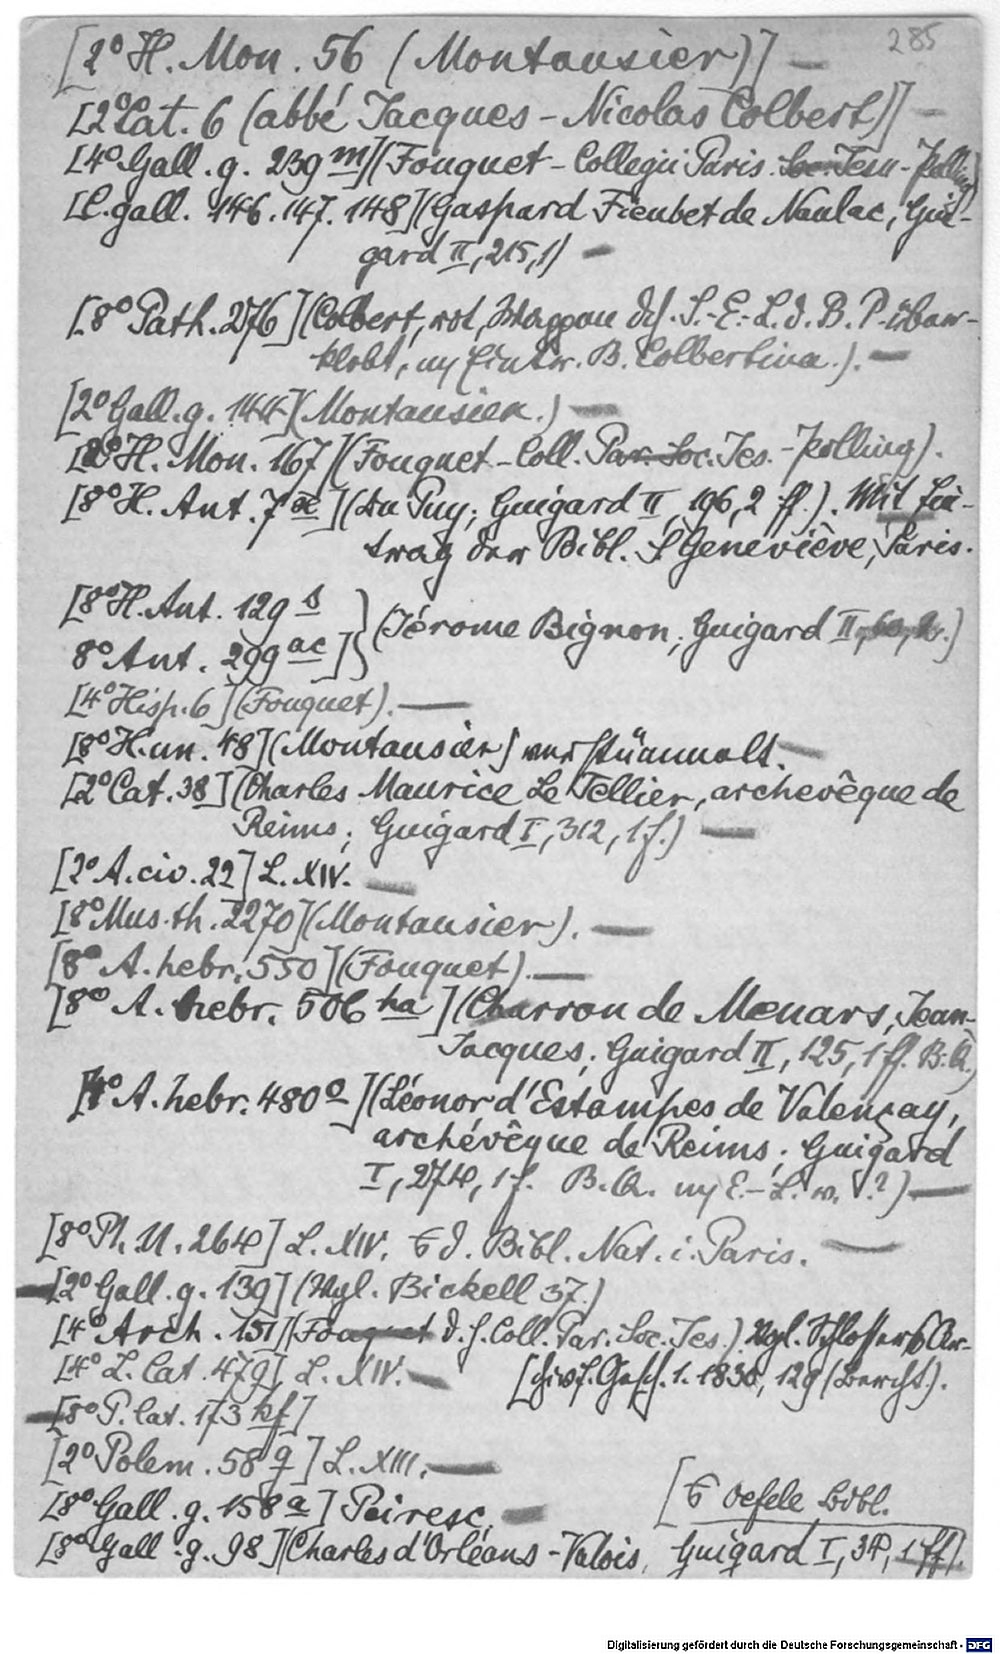 285
[2° H. Mon. 56 (Montausier)] —
[2° Lat. 6 (abbé Jacques-Nicolas Colbert)] —
[4° Gall. g. 239 m](Fouquet - Collegii Paris. Soc. Jesu - Polling
[C. gall. 146. 147. 148](Gaspard Fieubet de Naulac, Gui-
gard II, 215, 1) —
[8° Path. 276](Colbert, rot, Wappen d. S.-E.-L. d. B. P. über-
klebt, Eintr. B. Colbertina.). —
[2° Gall. g. 144](Montausier.) —
[8° H. Mon. 167](Fouquet - Coll. Par. Soc. Jes. - Polling).
[8° H. Ant. 7 x](Du Puy; Guigard II, 196, 2 ff.). Mit Ein-
trag der Bibl. S. Geneviève, Paris.
[8° H. Ant. 129 s
8° Ant. 299 ac]} (Jérome Bignon; Guigard II, 60, 2.)
[4° Hisp. 6](Fouquet). —
[8° H. un. 48](Montausier) verstümmelt. —
[2° Cat. 38](Charles Maurice Le Tellier, archevêque de
Reims; Guigard I, 312, 1 f.) —
[2° A. civ. 22] L. XIV. —
[8° Mus. th. 2270](Montausier). —
[8° A. hebr. 550](Fouquet). —
[8° A. hebr. 506 ha](Charron de Menars, Jean-
Jacques; Guigard II, 125, 1 ff. B. A.)
[4° A. hebr. 480 o](Léonor d'Estampes de Valençay,
archévêque de Reims; Guigard
I, 274, 1 f. B. A. E.-L. w. V.?) —
[8° Ph. U. 264] L. XIV. d. Bibl. Nat. i. Paris. —
[2° Gall. g. 139] (Vgl. Bickell 37.)
[4° Arch. 151](Fouquet d. h. Coll. Par. Soc. Jes.) Vgl. Schlossers Ar-
[chiv f. Gesch. 1. 1830, 129 (Bercht).
[4° L. lat. 479] L. XIV. —
[8° P. lat. 173 kf]
[2° Polem. 58 q] L. XIII. —
[8° Gall. g. 158 a] Peiresc. —
[Oefele Bibl.
[8° Gall. g. 98](Charles d'Orléans-Valois, Guigard I, 34, 1 ff).
Digitalisierung gefördert durch die Deutsche Forschungsgemeinschaft - DFG